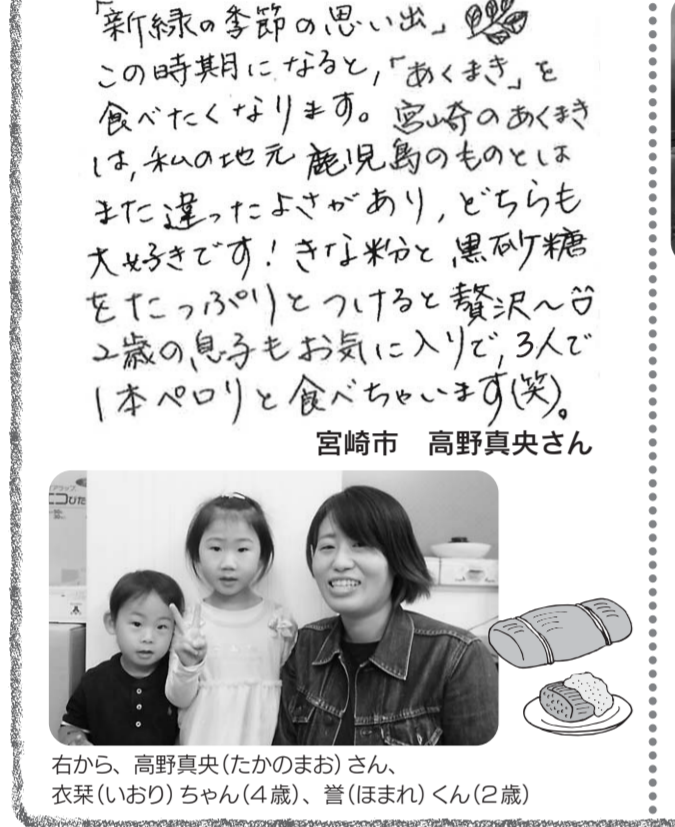 「新緑の季節の思い出」
この時期になると,「あくまき」を
食べたくなります。宮崎のあくまき
は,私の地元 鹿児島のものとは
また違ったよさがあり,どちらも
大好きです!きな粉と黒砂糖
をたっぷりとつけると贅沢〜
2歳の息子もお気に入りで,3人で
1本ペロリと食べちゃいます(笑)。
宮崎市 高野真央さん
右から、高野真央(たかのまお)さん、
衣栞(いおり)ちゃん(4歳)、誉(ほまれ)くん(2歳)